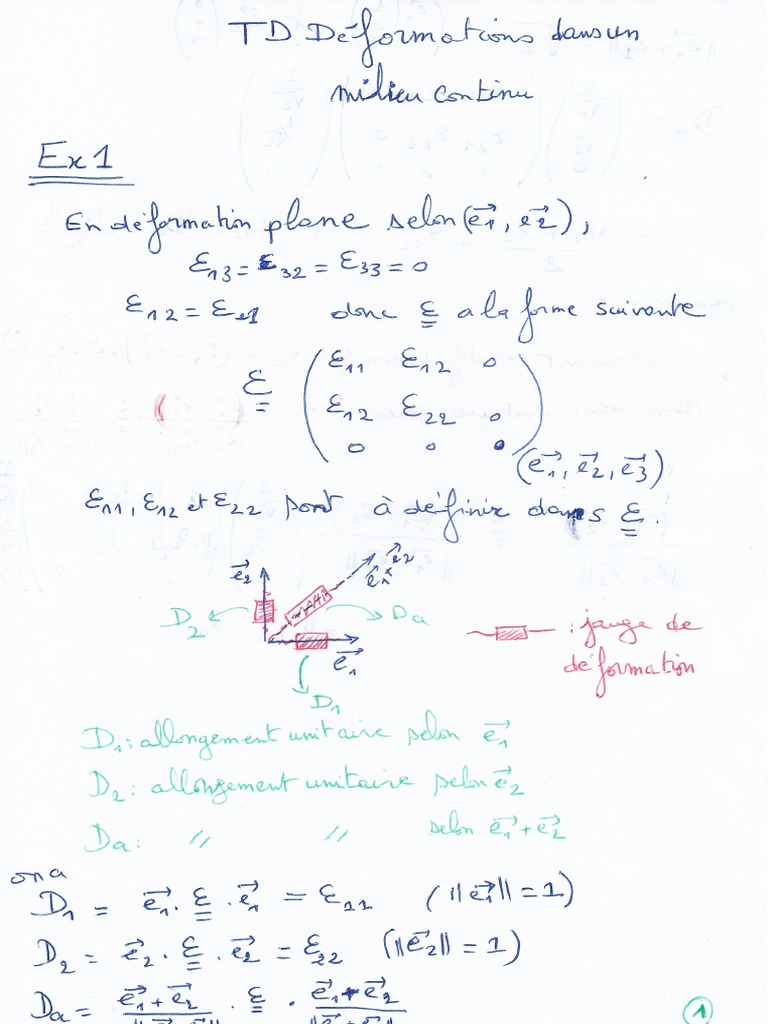 TD Déformations dans un
milieu continu
Ex1
En déformation plane selon (e⃗1, e⃗2),
ε13 = ε32 = ε33 = 0
ε12 = ε21 donc ε̳ a la forme suivante
ε̳ ( ε11 ε12 0
ε12 ε22 0
0 0 0 )
(e⃗1, e⃗2, e⃗3)
ε11, ε12 et ε22 sont à définir dans ε̳.
e⃗2 e⃗1+e⃗2
D2 Da
e⃗1
D1
: jauge de
déformation
D1 : allongement unitaire selon e⃗1
D2 : allongement unitaire selon e⃗2
Da : // // selon e⃗1+e⃗2
on a
D1 = e⃗1 . ε̳ . e⃗1 = ε11 (||e⃗1|| = 1)
D2 = e⃗2 . ε̳ . e⃗2 = ε22 (||e⃗2|| = 1)
Da = e⃗1+e⃗2 . ε̳ . e⃗1+e⃗2
1